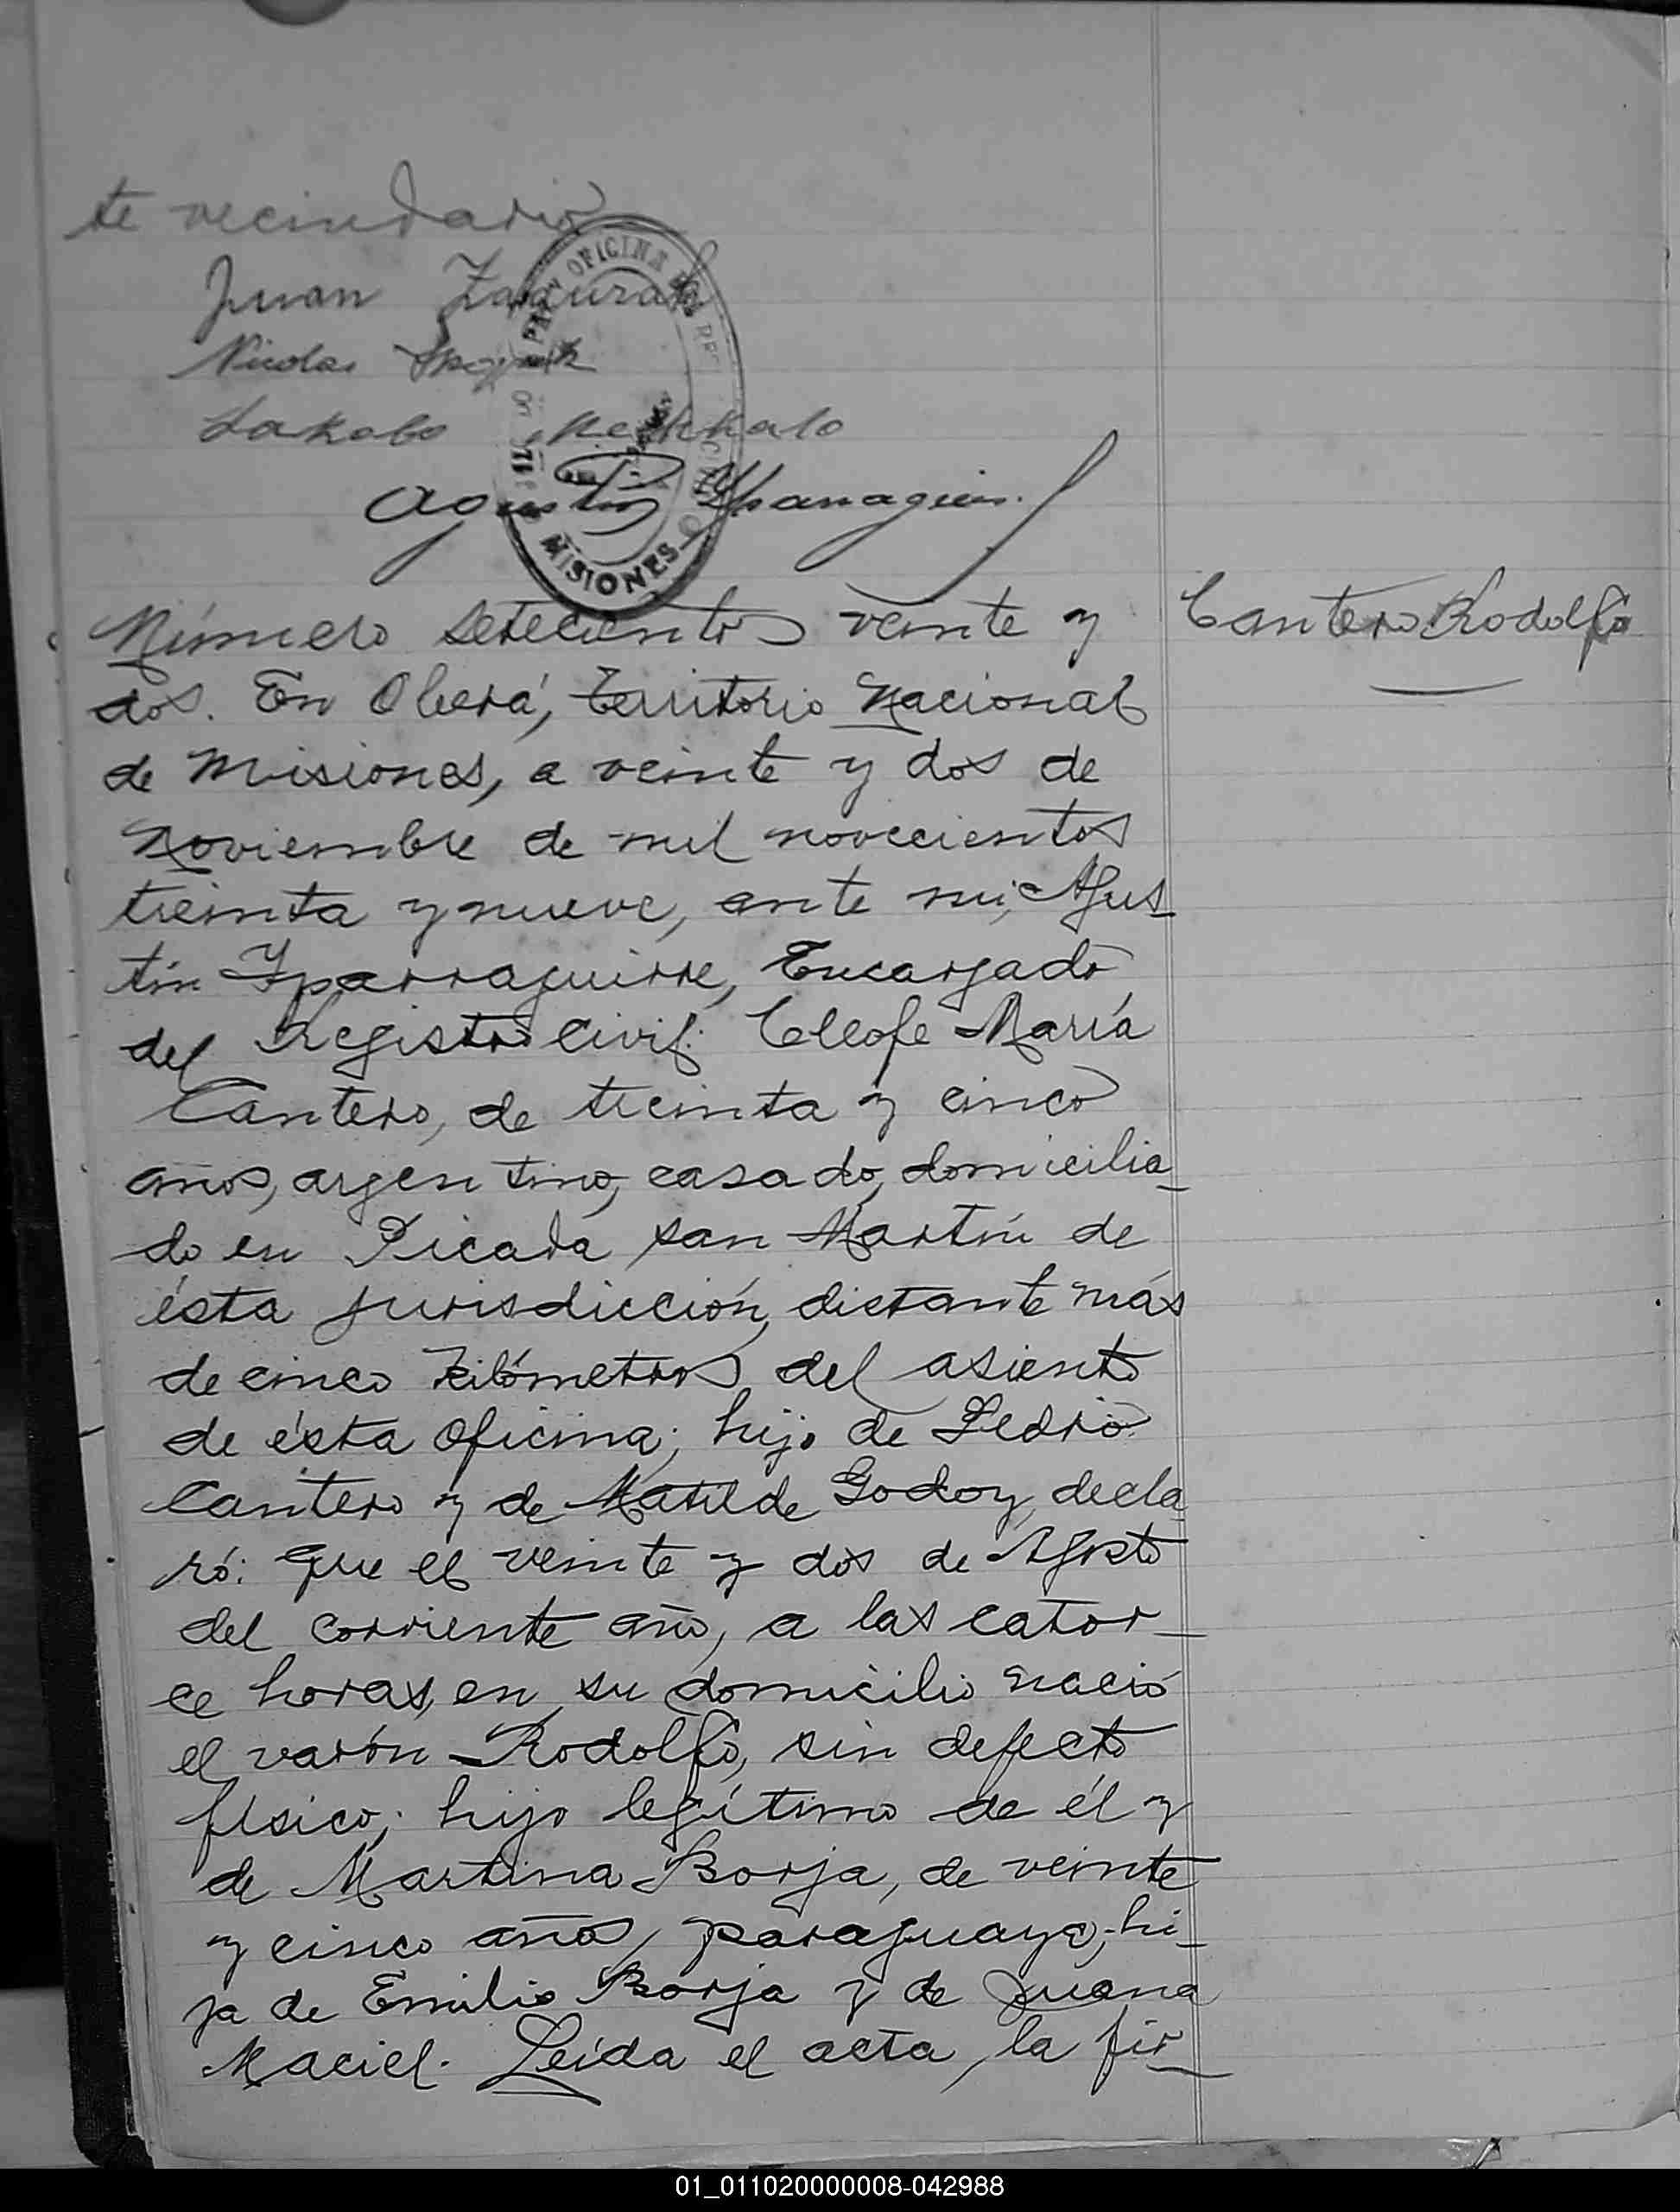 te vecindario
Juan
Nicolas
Agustin Yparraguirre
OFICINA
MISIONES
Número setecientos veinte y
Cantero Rodolfo
dos. En Oberá, Territorio Nacional
de Misiones, a veinte y dos de
Noviembre de mil novecientos
treinta y nueve, ante mi, Agus
tín Yparraguirre, Encargado
del Registro Civil: Cleofe María
Cantero, de treinta y cinco
años, argentino, casado, domicilia
do en Picada San Martín de
ésta jurisdicción, distante más
de cinco kilómetros del asiento
de ésta Oficina; hijo de Pedro
Cantero y de Matilde Godoy, decla
ró: que el veinte y dos de Agosto
del corriente año, a las cator
ce horas, en su domicilio nació
el varón Rodolfo, sin defecto
físico; hijo legítimo de él y
de Martina Borja, de veinte
y cinco años, paraguaya, hi
ja de Emilio Borja y de Juana
Maciel. Leída el acta, la fir
01_011020000008-042988